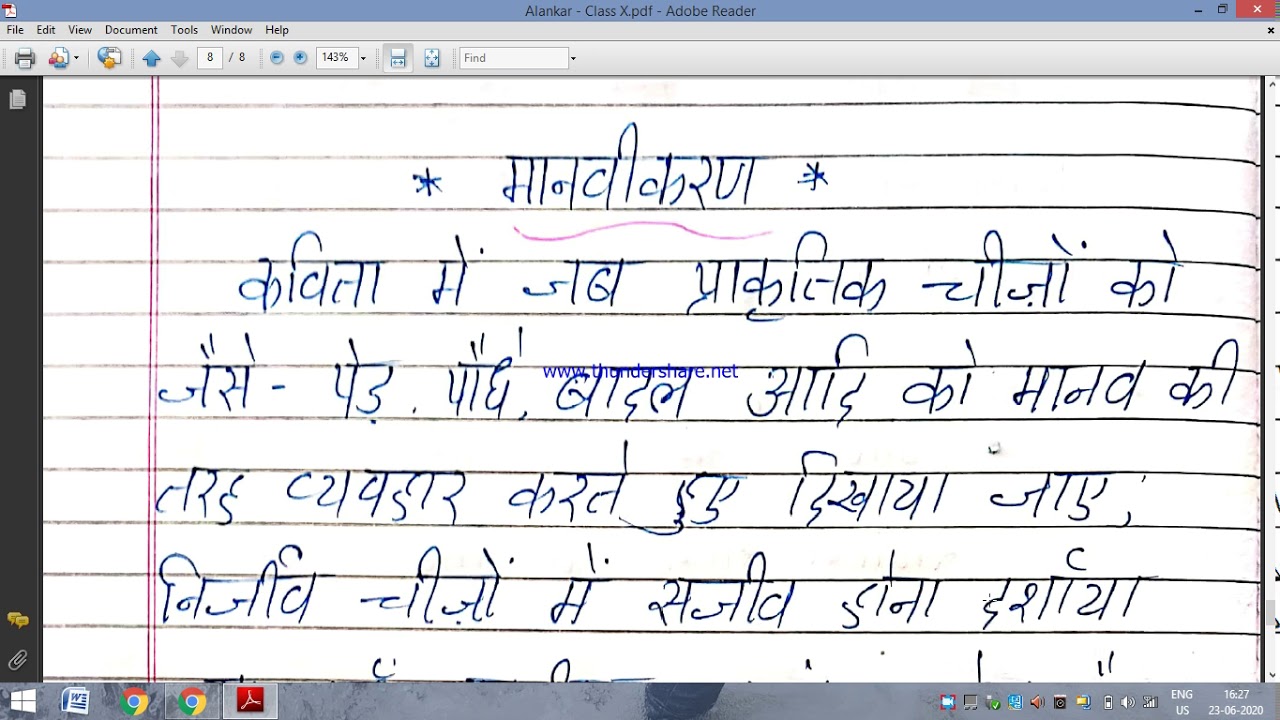 Alankar - Class X.pdf - Adobe Reader
File Edit View Document Tools Window Help
8 / 8 143% Find
* मानवीकरण *
कविता में जब प्राकृतिक चीज़ों को
जैसे - पेड़, पौधे, बादल आदि को मानव की
www.thundershare.net
तरह व्यवहार करते हुए दिखाया जाए,
निर्जीव चीज़ों में सजीव होना दर्शाया
ENG 16:27
US 23-06-2020